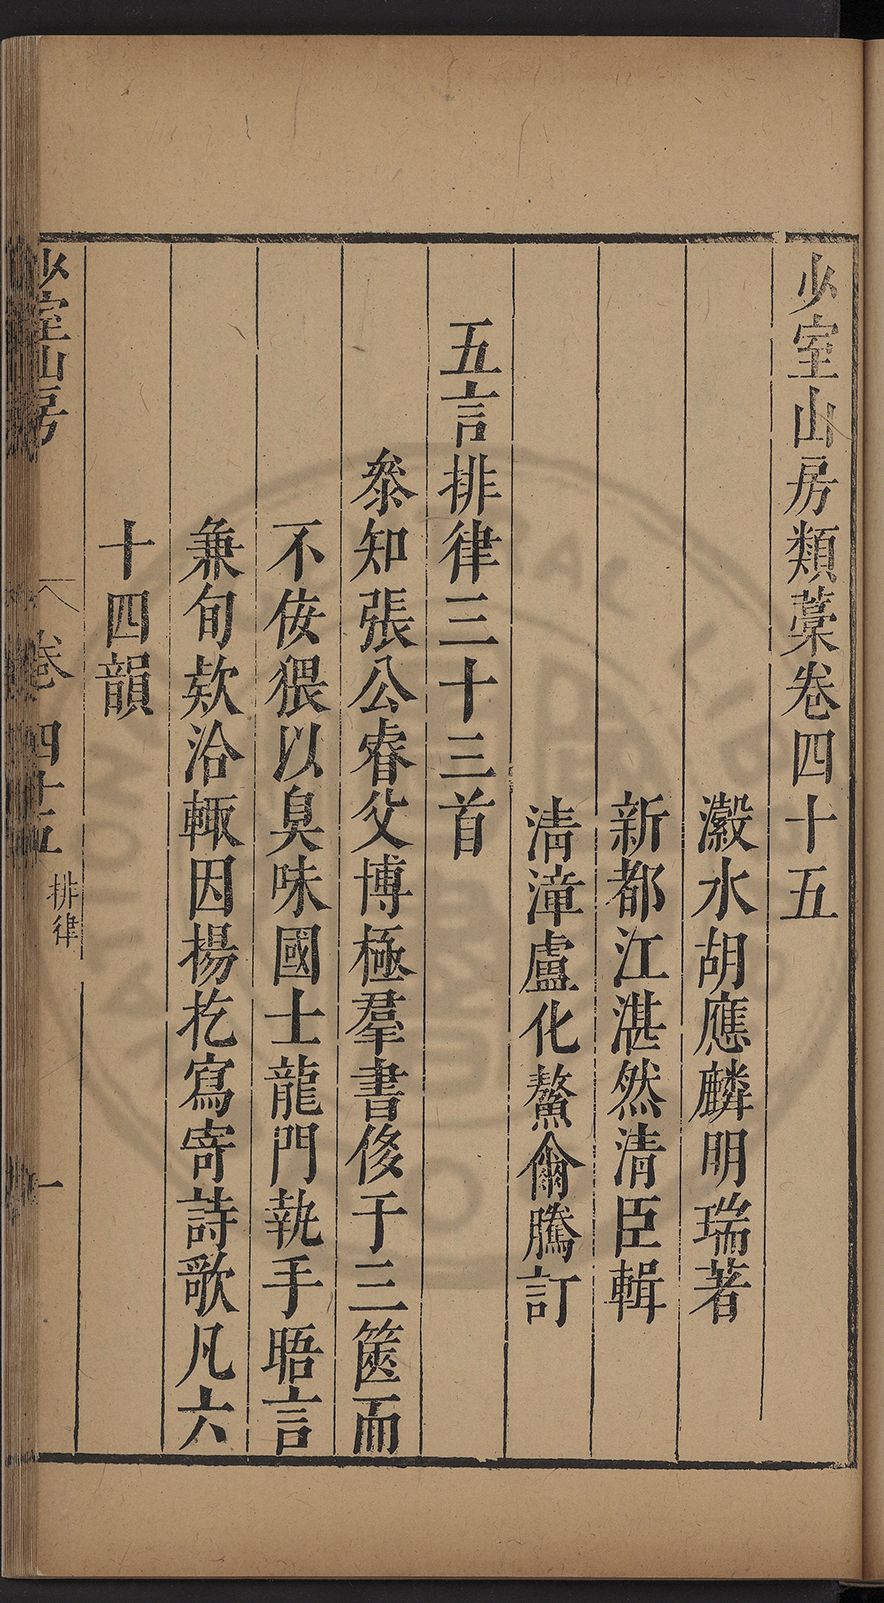 少室山房類藁卷四十五
瀫水胡應麟明瑞著
新都江湛然清臣輯
清漳盧化鰲爾騰訂
五言排律三十三首
叅知張公睿父博極羣書倐于三篋而
不侫猥以臭味國士龍門執手晤言
兼旬欵洽輙因揚扢寫寄詩歌凡六
十四韻
少室山房
卷四十五
排律
一